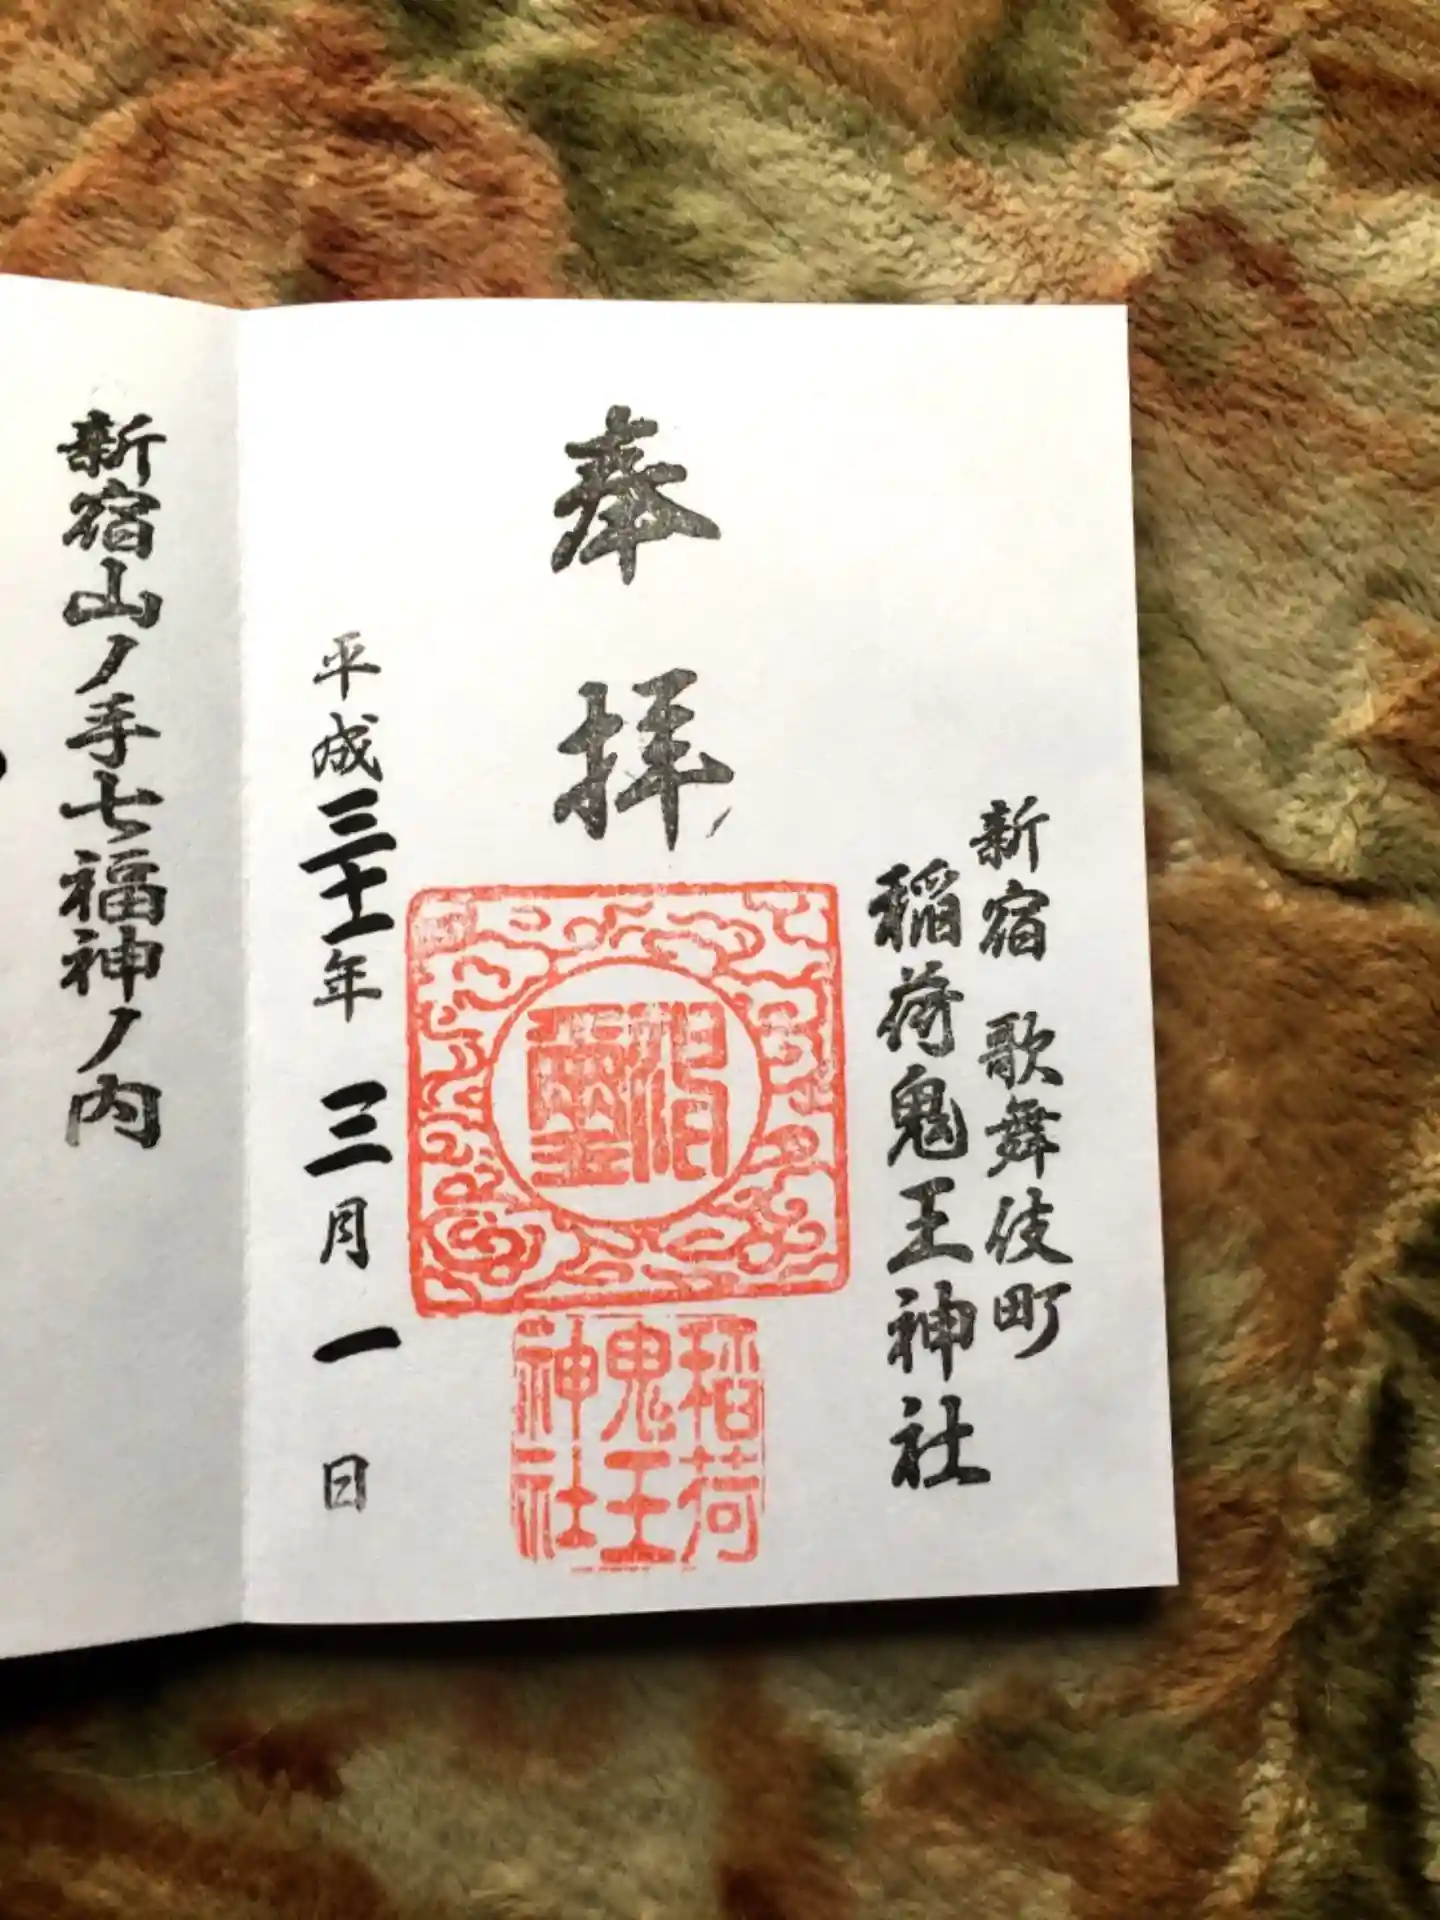 新宿 歌舞伎町
稲荷鬼王神社
奉拝
稲荷
鬼王
神社
平成三十一年 三月 一日
新宿山ノ手七福神ノ内